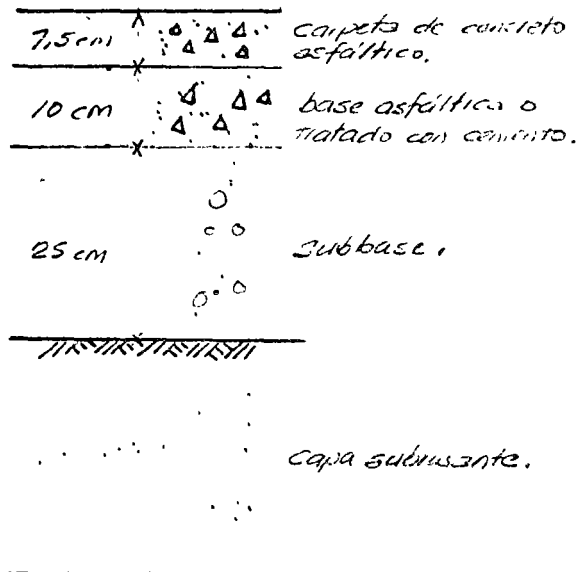 7,5 cm
carpeta de concreto
asfáltico.
10 cm
base asfáltica o
tratado con cemento.
25 cm
subbase.
capa subrasante.